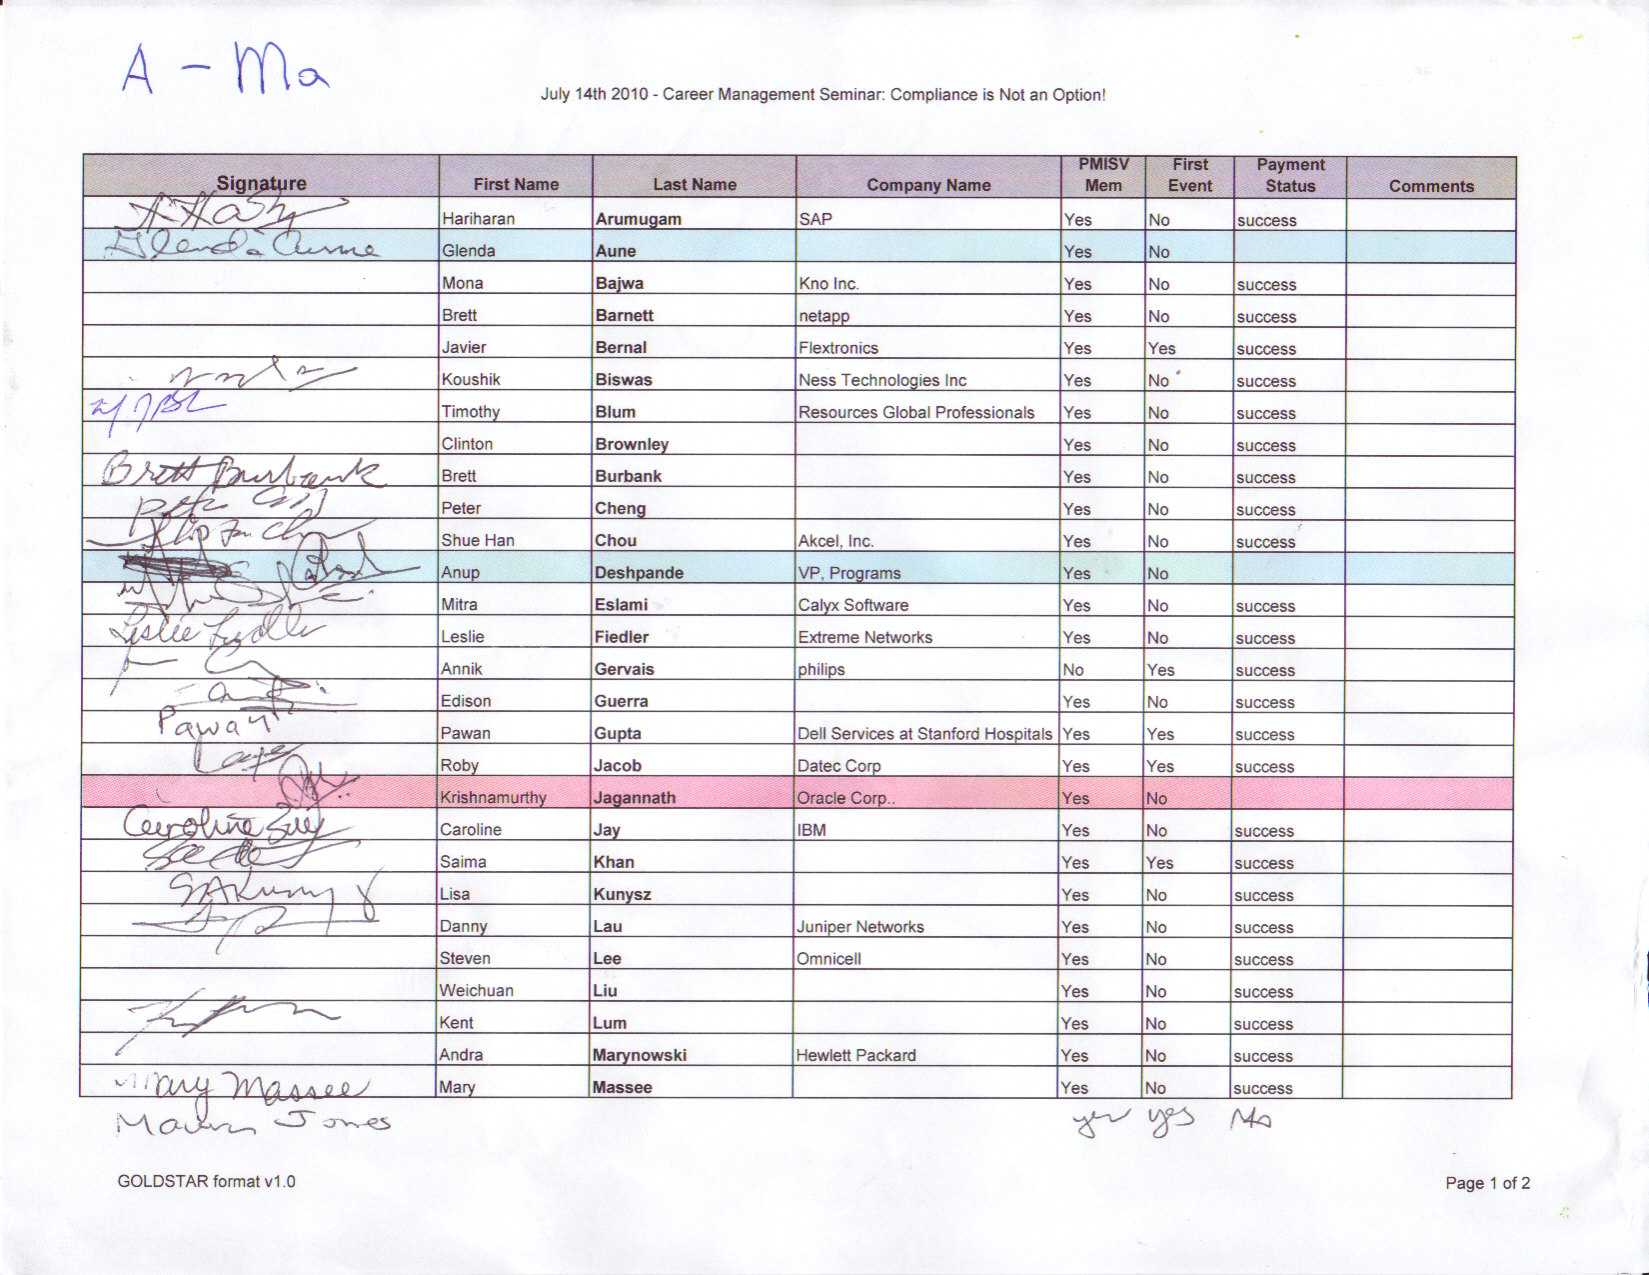 A - Ma
July 14th 2010 - Career Management Seminar: Compliance is Not an Option!
Signature First Name Last Name Company Name PMISV Mem First Event Payment Status Comments
Hariharan Arumugam SAP Yes No success
Glenda Aune Glenda Aune Yes No
Mona Bajwa Kno Inc. Yes No success
Brett Barnett netapp Yes No success
Javier Bernal Flextronics Yes Yes success
Koushik Biswas Ness Technologies Inc Yes No success
Timothy Blum Resources Global Professionals Yes No success
Clinton Brownley Yes No success
Brett Burbank Brett Burbank Yes No success
Peter Cheng Yes No success
Shue Han Chou Akcel, Inc. Yes No success
Anup Deshpande VP, Programs Yes No
Mitra Eslami Calyx Software Yes No success
Leslie Fiedler Leslie Fiedler Extreme Networks Yes No success
Annik Gervais philips No Yes success
Edison Guerra Yes No success
Pawan Pawan Gupta Dell Services at Stanford Hospitals Yes Yes success
Roby Jacob Datec Corp Yes Yes success
Krishnamurthy Jagannath Oracle Corp.. Yes No
Caroline Jay Caroline Jay IBM Yes No success
Saima Khan Yes Yes success
Lisa Kunysz Yes No success
Danny Lau Juniper Networks Yes No success
Steven Lee Omnicell Yes No success
Weichuan Liu Yes No success
Kent Lum Yes No success
Andra Marynowski Hewlett Packard Yes No success
Mary Massee Mary Massee Yes No success
Jones yes yes No
GOLDSTAR format v1.0 Page 1 of 2